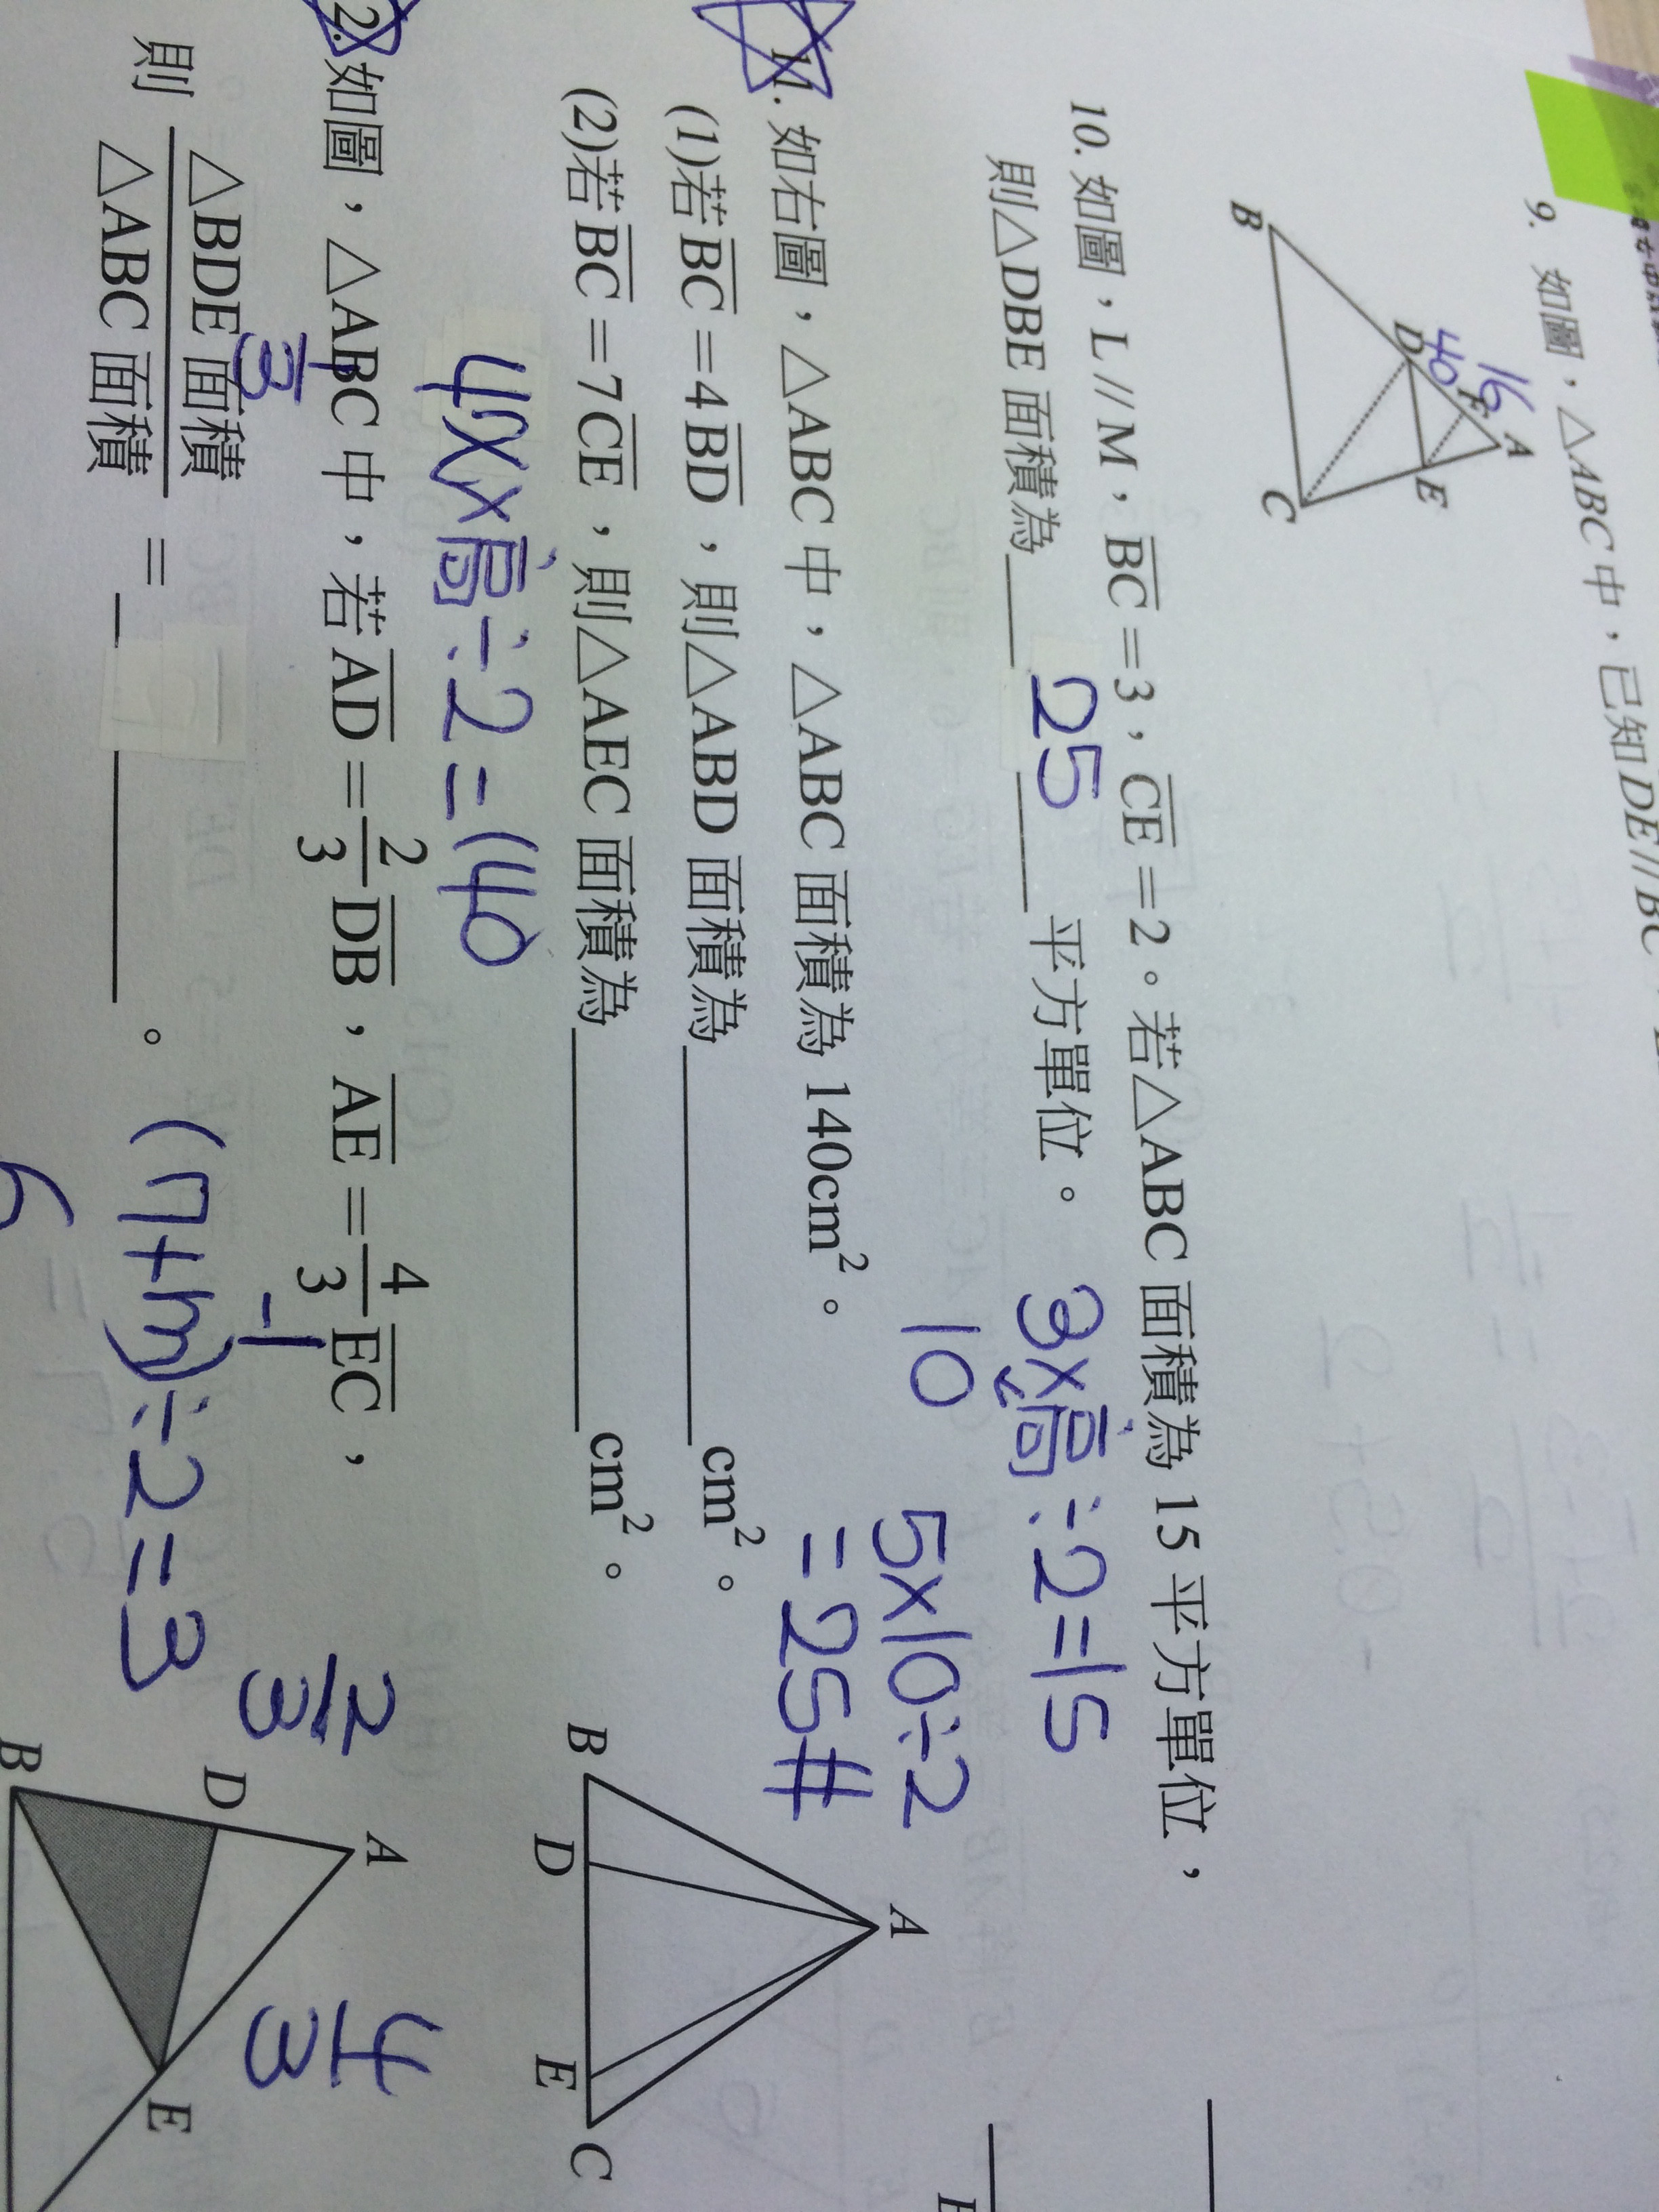 9. 如圖，△ABC中，已知DE//BC，
A
16
F
40
D
E
B
C
10. 如圖，L//M，BC=3，CE=2。若△ABC面積為15平方單位，
則△DBE面積為 25 平方單位。
3×高÷2=15
10
5×10÷2
=25#
11. 如右圖，△ABC中，△ABC面積為140cm²。
(1)若BC=4BD，則△ABD面積為 cm²。
(2)若BC=7CE，則△AEC面積為 cm²。
A
B
D
E
C
4x×高÷2=140
2. 如圖，△ABC中，若AD=2/3 DB，AE=4/3 EC，
則 △BDE面積/△ABC面積 = 。
(n+m)÷2=3
6
2/3
4/3
A
D
E
B